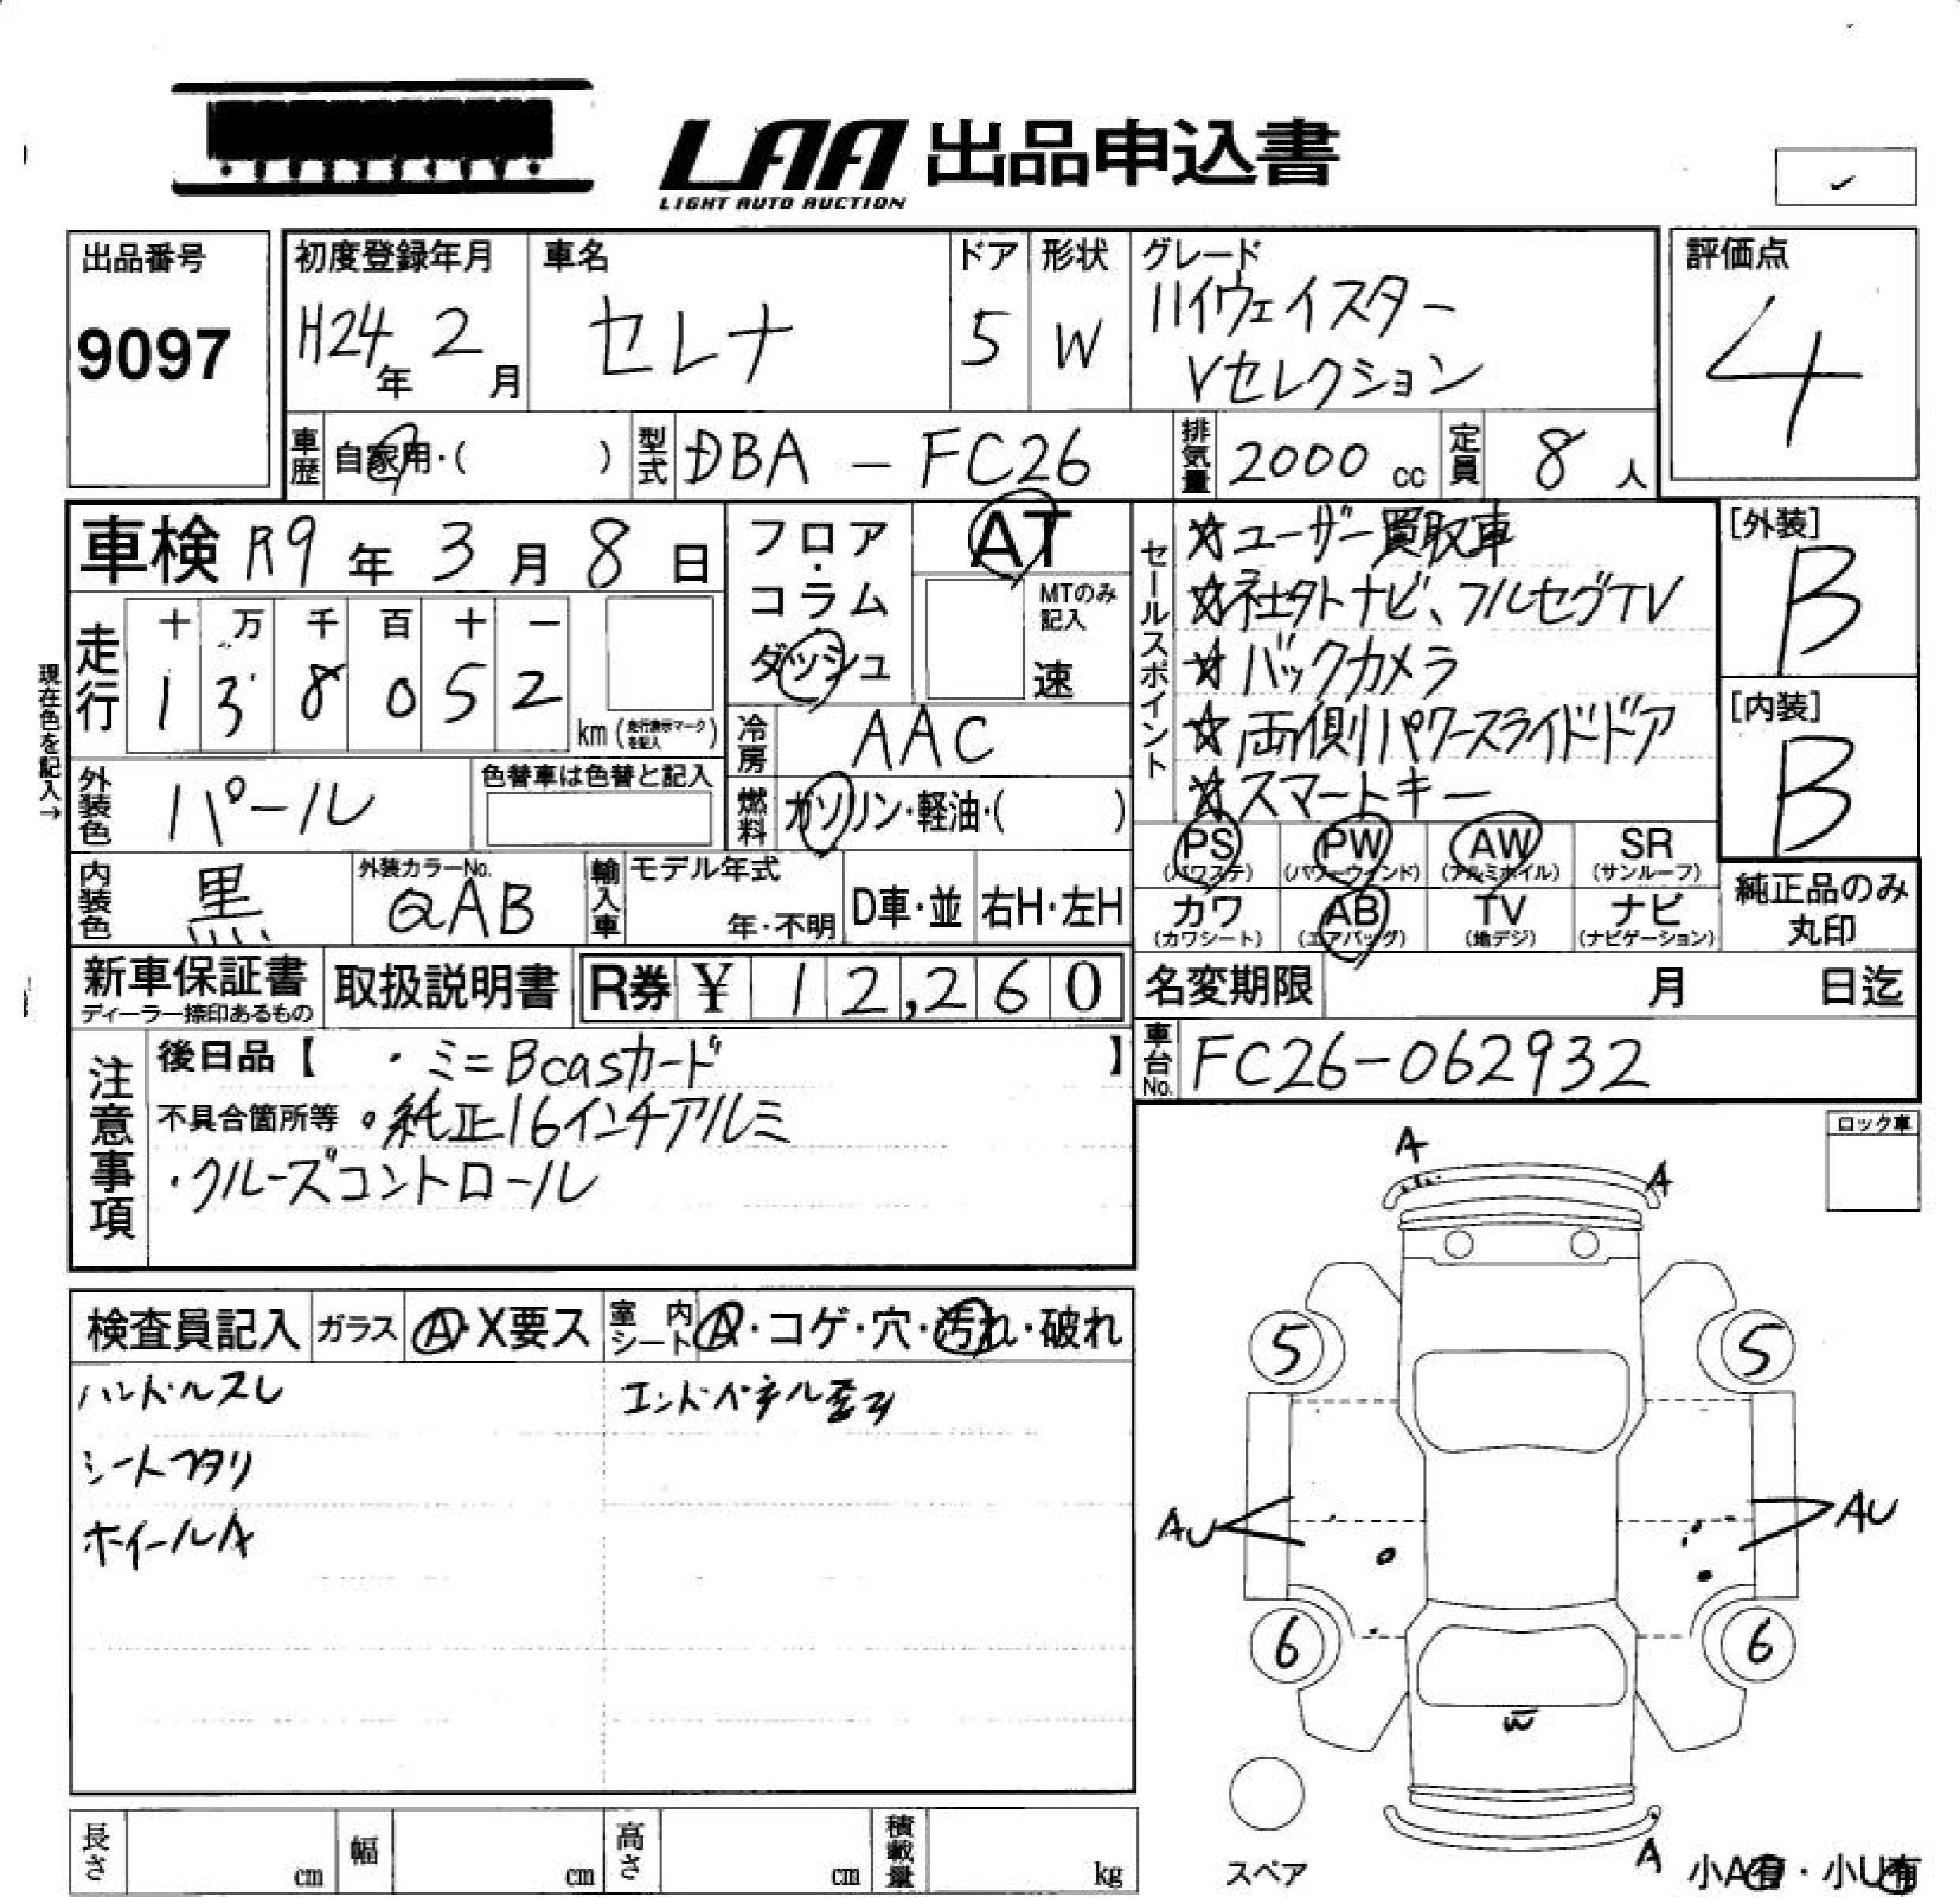 LAA 出品申込書
LIGHT AUTO AUCTION
出品番号
9097
初度登録年月
H24年 2月
車名
セレナ
ドア
5
形状
W
グレード
ハイウェイスター
Vセレクション
評価点
4
車歴
自家用・( )
型式
DBA - FC26
排気量
2000 cc
定員
8 人
車検 R9年 3月 8日
走行
十 万 千 百 十 一
1 3 8 0 5 2
km (走行表示マークを記入)
現在色を記入→
フロア・コラム
ダッシュ
AT
MTのみ記入
速
冷房
AAC
燃料
ガソリン・軽油・( )
セールスポイント
☆ユーザー買取車
☆社外ナビ、フルセグTV
☆バックカメラ
☆両側パワースライドドア
☆スマートキー
[外装]
B
[内装]
B
外装色
パール
色替車は色替と記入
内装色
黒
外装カラーNo.
QAB
輸入車
モデル年式
年・不明
D車・並
右H・左H
PS (パワステ)
PW (パワーウインド)
AW (アルミホイル)
SR (サンルーフ)
カワ (カワシート)
AB (エアバッグ)
TV (地デジ)
ナビ (ナビゲーション)
純正品のみ
丸印
新車保証書
ディーラー捺印あるもの
取扱説明書
R券 ¥ 12,260
名変期限 月 日迄
車台No.
FC26-062932
注意事項
後日品【 ・ミニBcasカード 】
不具合箇所等 。純正16インチアルミ
・クルーズコントロール
ロック車
検査員記入
ガラス
A・X要ス
室内シート
A・コゲ・穴・汚れ・破れ
ハンドルスレ
エンドパネル歪み
シートヘタリ
ホイールA
A
A
5
5
AU
AU
6
6
W
A
スペア
小A有・小U有
長さ cm
幅 cm
高さ cm
積載量 kg